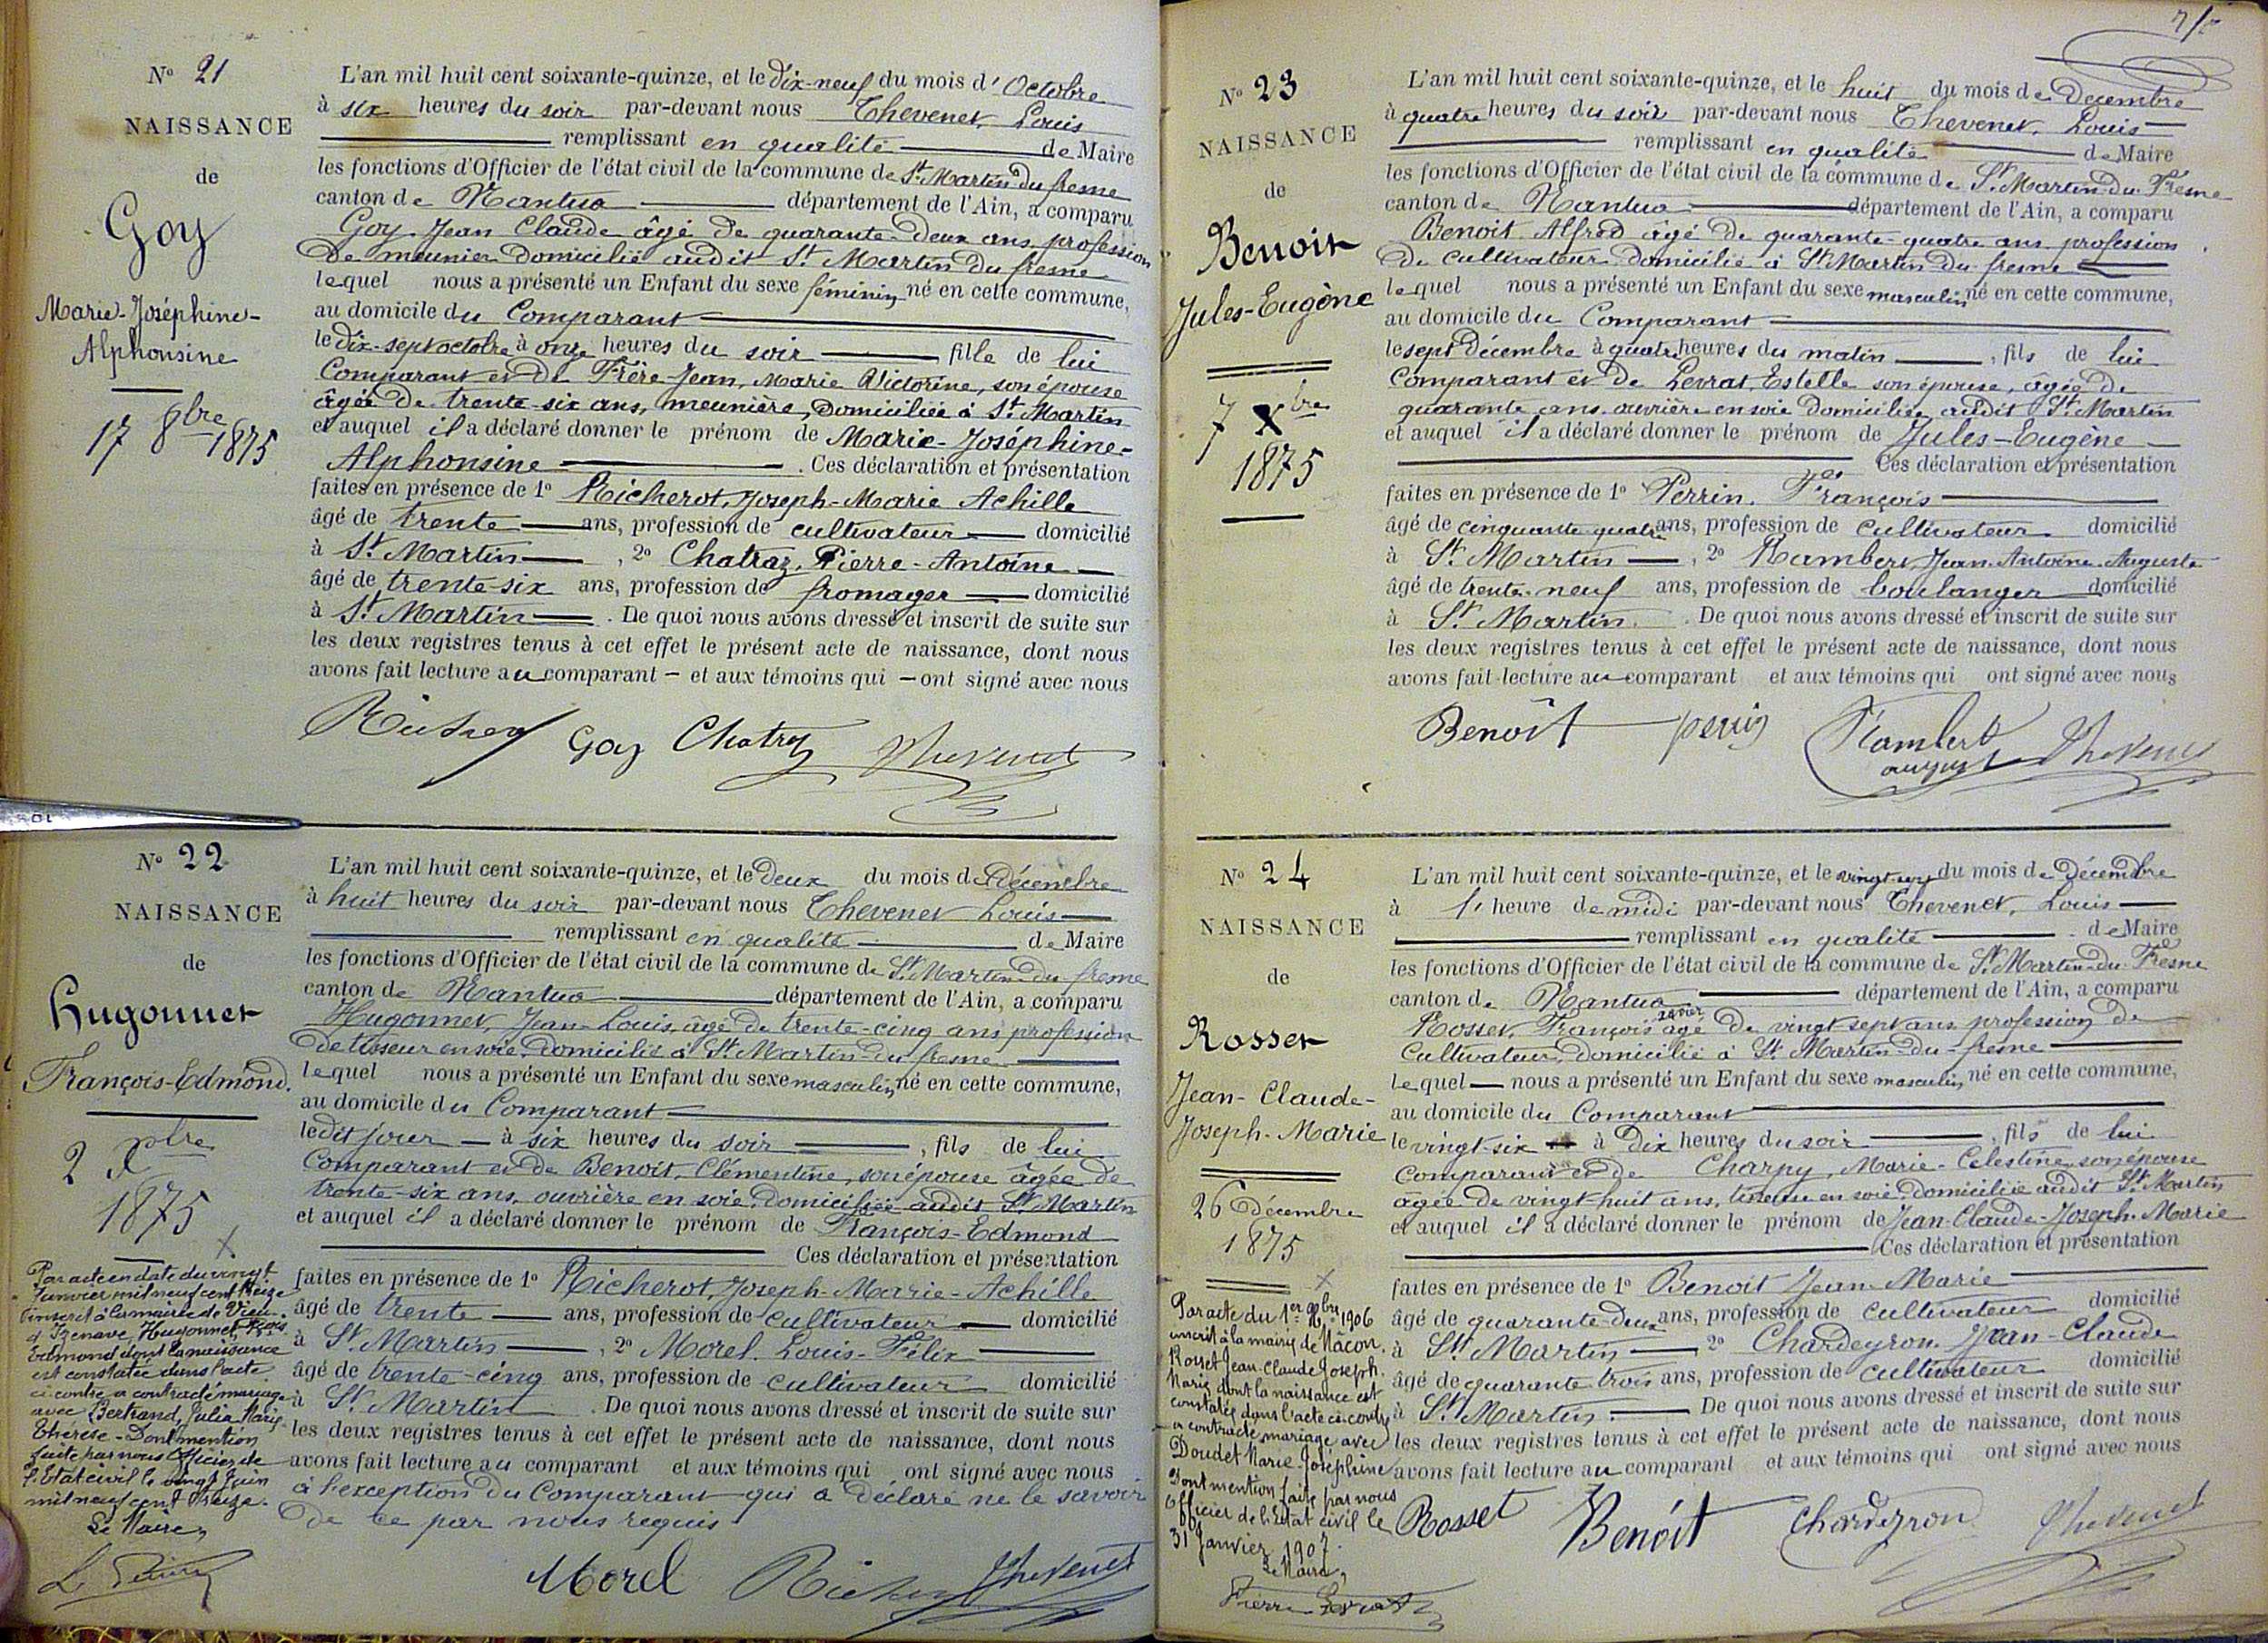 N° 21
NAISSANCE
de
Goy
Marie-Joséphine-
Alphonsine
17 8bre 1875
L'an mil huit cent soixante-quinze, et le dix-neuf du mois d'Octobre
à six heures du soir par-devant nous Thevenet, Louis
remplissant en qualité de Maire
les fonctions d'Officier de l'état civil de la commune de St. Martin du fresne
canton de Nantua département de l'Ain, a comparu
Goy, Jean Claude âgé de quarante-deux ans, profession
de meunier domicilié audit St. Martin du fresne
lequel nous a présenté un Enfant du sexe féminin né en cette commune,
au domicile du Comparant
le dix-sept octobre à onze heures du soir fille de lui
Comparant et de Frère-Jean, Marie Victorine, son épouse
âgée de trente-six ans, meunière, domiciliée à St. Martin
et auquel il a déclaré donner le prénom de Marie-Joséphine-
Alphonsine . Ces déclaration et présentation
faites en présence de 1° Richerot, Joseph-Marie Achille
âgé de trente ans, profession de cultivateur domicilié
à St. Martin , 2° Chatraz, Pierre-Antoine
âgé de trente-six ans, profession de fromager domicilié
à St. Martin . De quoi nous avons dressé et inscrit de suite sur
les deux registres tenus à cet effet le présent acte de naissance, dont nous
avons fait lecture au comparant et aux témoins qui ont signé avec nous
Goy Thevenet
N° 22
NAISSANCE
de
Hugonnet
François-Edmond.
2 Xbre
1875
X
Par acte en date du vingt
Janvier mil neuf cent treize
inscrit à la mairie de Vieu-
d'Izenave, Hugonnet, Fçois
Edmond dont la naissance
est constatée dans l'acte
ci-contre a contracté mariage
avec Bertrand, Julia Marie
Thérèse - Dont mention
faite par nous Officier de
l'Etat civil le vingt Juin
mil neuf cent treize.
Le Maire,
L'an mil huit cent soixante-quinze, et le deux du mois de Décembre
à huit heures du soir par-devant nous Thevenet Louis
remplissant en qualité de Maire
les fonctions d'Officier de l'état civil de la commune de St. Martin-du-fresne
canton de Nantua département de l'Ain, a comparu
Hugonnet, Jean-Louis, âgé de trente-cinq ans profession
de tisseur en soie, domicilié à St. Martin-du-fresne
lequel nous a présenté un Enfant du sexe masculin né en cette commune,
au domicile du Comparant
le dit jour à six heures du soir , fils de lui
Comparant et de Benoit, Clémentine, son épouse âgée de
trente-six ans, ouvrière en soie, domiciliée audit St. Martin
et auquel il a déclaré donner le prénom de François-Edmond
Ces déclaration et présentation
faites en présence de 1° Richerot, Joseph-Marie-Achille
âgé de trente ans, profession de cultivateur domicilié
à St. Martin , 2° Morel, Louis-Félix
âgé de trente-cinq ans, profession de cultivateur domicilié
à St. Martin . De quoi nous avons dressé et inscrit de suite sur
les deux registres tenus à cet effet le présent acte de naissance, dont nous
avons fait lecture au comparant et aux témoins qui ont signé avec nous
à l'exception du Comparant qui a déclaré ne le savoir
de ce par nous requis
Morel Thevenet
N° 23
NAISSANCE
de
Benoit
Jules-Eugène
7 Xbre
1875
L'an mil huit cent soixante-quinze, et le huit du mois de Décembre
à quatre heures du soir par-devant nous Thevenet, Louis
remplissant en qualité de Maire
les fonctions d'Officier de l'état civil de la commune de St. Martin-du-Fresne
canton de Nantua département de l'Ain, a comparu
Benoit Alfred âgé de quarante-quatre ans profession
de Cultivateur domicilié à St. Martin-du-fresne
lequel nous a présenté un Enfant du sexe masculin né en cette commune,
au domicile du Comparant
le sept décembre à quatre heures du matin , fils de lui
Comparant et de Levrat, Estelle son épouse, âgée de
quarante ans, ouvrière en soie domiciliée audit St. Martin
et auquel il a déclaré donner le prénom de Jules-Eugène
Ces déclaration et présentation
faites en présence de 1° Perrin, François
âgé de cinquante quatre ans, profession de cultivateur domicilié
à St. Martin , 2° Rambert, Jean-Antoine-Auguste
âgé de trente-neuf ans, profession de boulanger domicilié
à St. Martin . De quoi nous avons dressé et inscrit de suite sur
les deux registres tenus à cet effet le présent acte de naissance, dont nous
avons fait lecture au comparant et aux témoins qui ont signé avec nous
Benoît perrin Rambert
august Thevenet
N° 24
NAISSANCE
de
Rosset
Jean-Claude-
Joseph-Marie
26 Décembre
1875
X
Par acte du 1er 1906
inscrit à la mairie de Mâcon,
Rosset Jean-Claude Joseph.
Marie dont la naissance est
constatée dans l'acte ci-contre
a contracté mariage avec
Doudet Marie-Joséphine
Dont mention faite par nous
Officier de l'Etat civil le
31 Janvier 1907.
Le Maire,
Pierre Levrat
L'an mil huit cent soixante-quinze, et le vingt-sept du mois de Décembre
à 1 heure de midi par-devant nous Thevenet, Louis
remplissant en qualité de Maire
les fonctions d'Officier de l'état civil de la commune de St. Martin-du-Fresne
canton de Nantua département de l'Ain, a comparu
Rosset, François xavier âgé de vingt sept ans profession de
Cultivateur, domicilié à St. Martin-du-fresne
lequel nous a présenté un Enfant du sexe masculin né en cette commune,
au domicile du Comparant
le vingt-six à dix heures du soir , fils de lui
Comparant et de Charpy, Marie-Célestine, son épouse
âgée de vingt-huit ans, tisseuse en soie domiciliée audit St. Martin
et auquel il a déclaré donner le prénom de Jean-Claude-Joseph-Marie
Ces déclaration et présentation
faites en présence de 1° Benoit Jean-Marie
âgé de quarante-deux ans, profession de cultivateur domicilié
à St. Martin 2° Chardeyron, Jean-Claude
âgé de quarante trois ans, profession de cultivateur domicilié
à St. Martin. De quoi nous avons dressé et inscrit de suite sur
les deux registres tenus à cet effet le présent acte de naissance, dont nous
avons fait lecture au comparant et aux témoins qui ont signé avec nous
Rosset Benoît Chardeyron Thevenet